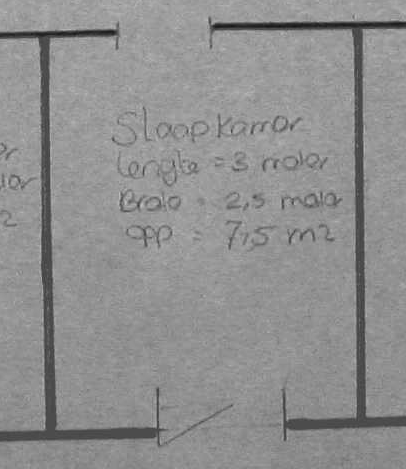 Slaapkamer
Lengte = 3 meter
Brede = 2,5 meter
opp = 7,5 m2